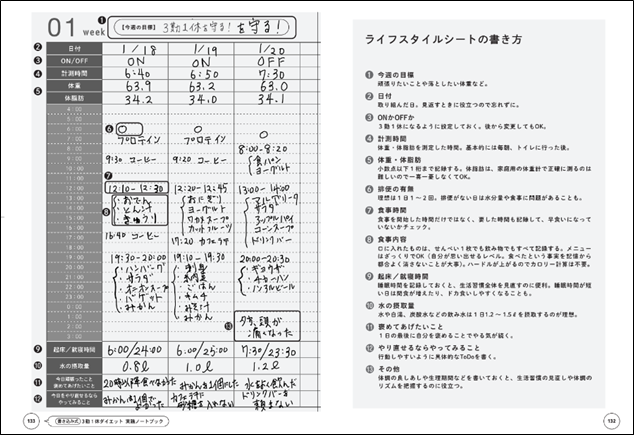 01 week
❶【今週の目標】3勤1休を守る！を守る！
❷ 日付 1/18 1/19 1/20
❸ ON/OFF ON ON OFF
❹ 計測時間 6:40 6:50 7:30
❺ 体重 63.9 63.2 63.0
体脂肪 34.2 34.0 34.1
4:00
5:00
6:00
7:00
8:00
9:00
10:00
11:00
12:00
13:00
14:00
15:00
16:00
17:00
18:00
19:00
20:00
21:00
22:00
23:00
0:00
❻ ○ ○ ○
プロテイン プロテイン
8:00-8:20
食パン
ヨーグルト
9:30 コーヒー 9:20 コーヒー
❼
12:10-12:30 12:20-12:45 13:00-14:00
❽
・おでん
・とん汁
・きゅうり
おにぎり
ヨーグルト
ワカメスープ
カットフルーツ
マルゲリータ
サラダ
アップルパイ
コーンスープ
ドリンクバー
16:40 コーヒー
17:20 カフェラテ
19:30-20:00 19:10-19:30 20:00-20:30
・ハンバーグ
・サラダ
・オニオンスープ
・バゲット
・みかん
・ごはん
・キムチ
・みそ汁
・みかん
・ギョウザ
・チャーハン
・ノンアルビール
⓭ 夕方、頭が
痛くなった
❾ 起床/就寝時間 6:00/24:00 6:00/25:00 7:30/23:30
❿ 水の摂取量 0.8ℓ 1.0ℓ 1.2ℓ
⓫ 今日頑張ったこと
褒めてあげたいこと
20時以降食べなかった みかんを1個にした 水を多く飲んだ
⓬ 今日をやり直せるなら
やってみること
みかんを1個で
カフェラテに
砂糖を入れない
ドリンクバーを
頼まない
133 書き込み式 3勤1休ダイエット 実践ノートブック
ライフスタイルシートの書き方
❶ 今週の目標
頑張りたいことや落としたい体重など。
❷ 日付
取り組んだ日。見返すときに役立つので忘れずに。
❸ ONかOFFか
3勤1休になるように設定しておく。後から変更してもOK。
❹ 計測時間
体重・体脂肪を測定した時間。基本的には毎朝、トイレに行った後。
❺ 体重・体脂肪
小数点以下1桁まで記録する。体脂肪は、家庭用の体重計で正確に測るのは
難しいので一喜一憂しなくてOK。
❻ 排便の有無
理想は1日1〜2回。排便がない日は水分量や食事に問題があることも。
❼ 食事時間
食事を開始した時間だけではなく、要した時間も記録して、早食いになって
いないかチェック。
❽ 食事内容
口に入れたものは、せんべい1枚でも飲み物でもすべて記録する。メニュー
はざっくりでOK（自分が思い出せるレベル。食べたという事実を記憶から
都合よく消さないことが大事）。ハードルが上がるのでカロリー計算は不要。
❾ 起床／就寝時間
睡眠時間を記録しておくと、生活習慣全体を見直すのに便利。睡眠時間が短
い日は間食が増えたり、ドカ食いしやすくなることも。
❿ 水の摂取量
水や白湯、炭酸水などの飲み水は1日1.2〜1.5ℓを摂取するのが理想。
⓫ 褒めてあげたいこと
1日の最後に自分を褒めることでやる気が続く。
⓬ やり直せるならやってみること
行動しやすいように具体的なToDoを書く。
⓭ その他
体調の良しあしや生理期間などを書いておくと、生活習慣の見直しや体調の
リズムを把握するのに役立つ。
132